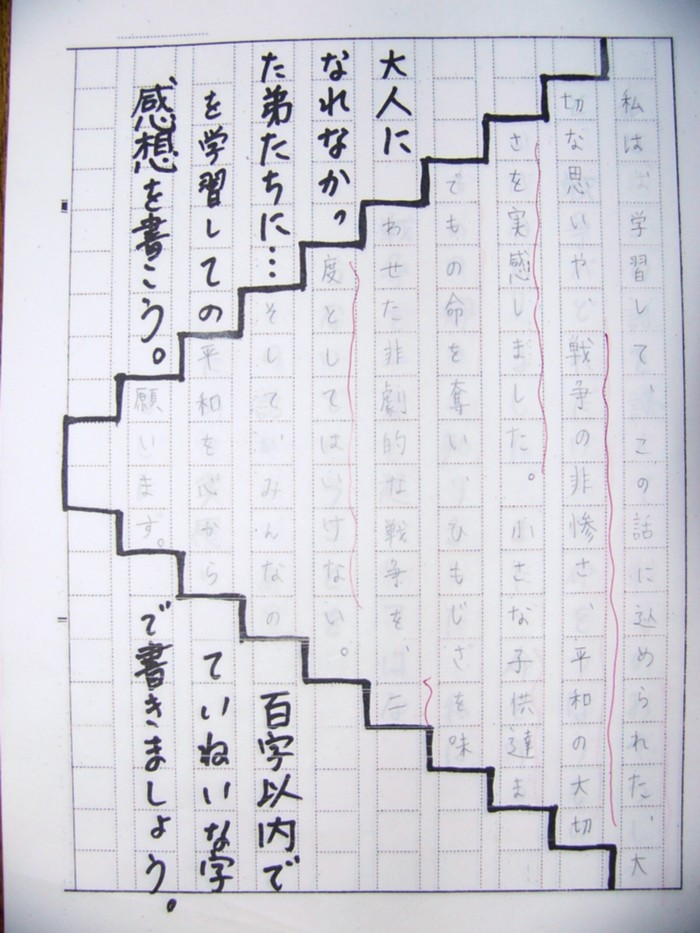 私は、学習して、この話に込められた、大
切な思いや、戦争の非惨さ、平和の大切
さを実感しました。小さな子供達ま
でもの命を奪い、ひもじさを味
わせた非劇的な戦争を、二
度としてはいけない。
そして、みんなの
平和を心から
願います。
大人に
なれなかっ
た弟たちに…
を学習しての
感想を書こう。
百字以内で
ていねいな字
で書きましょう。